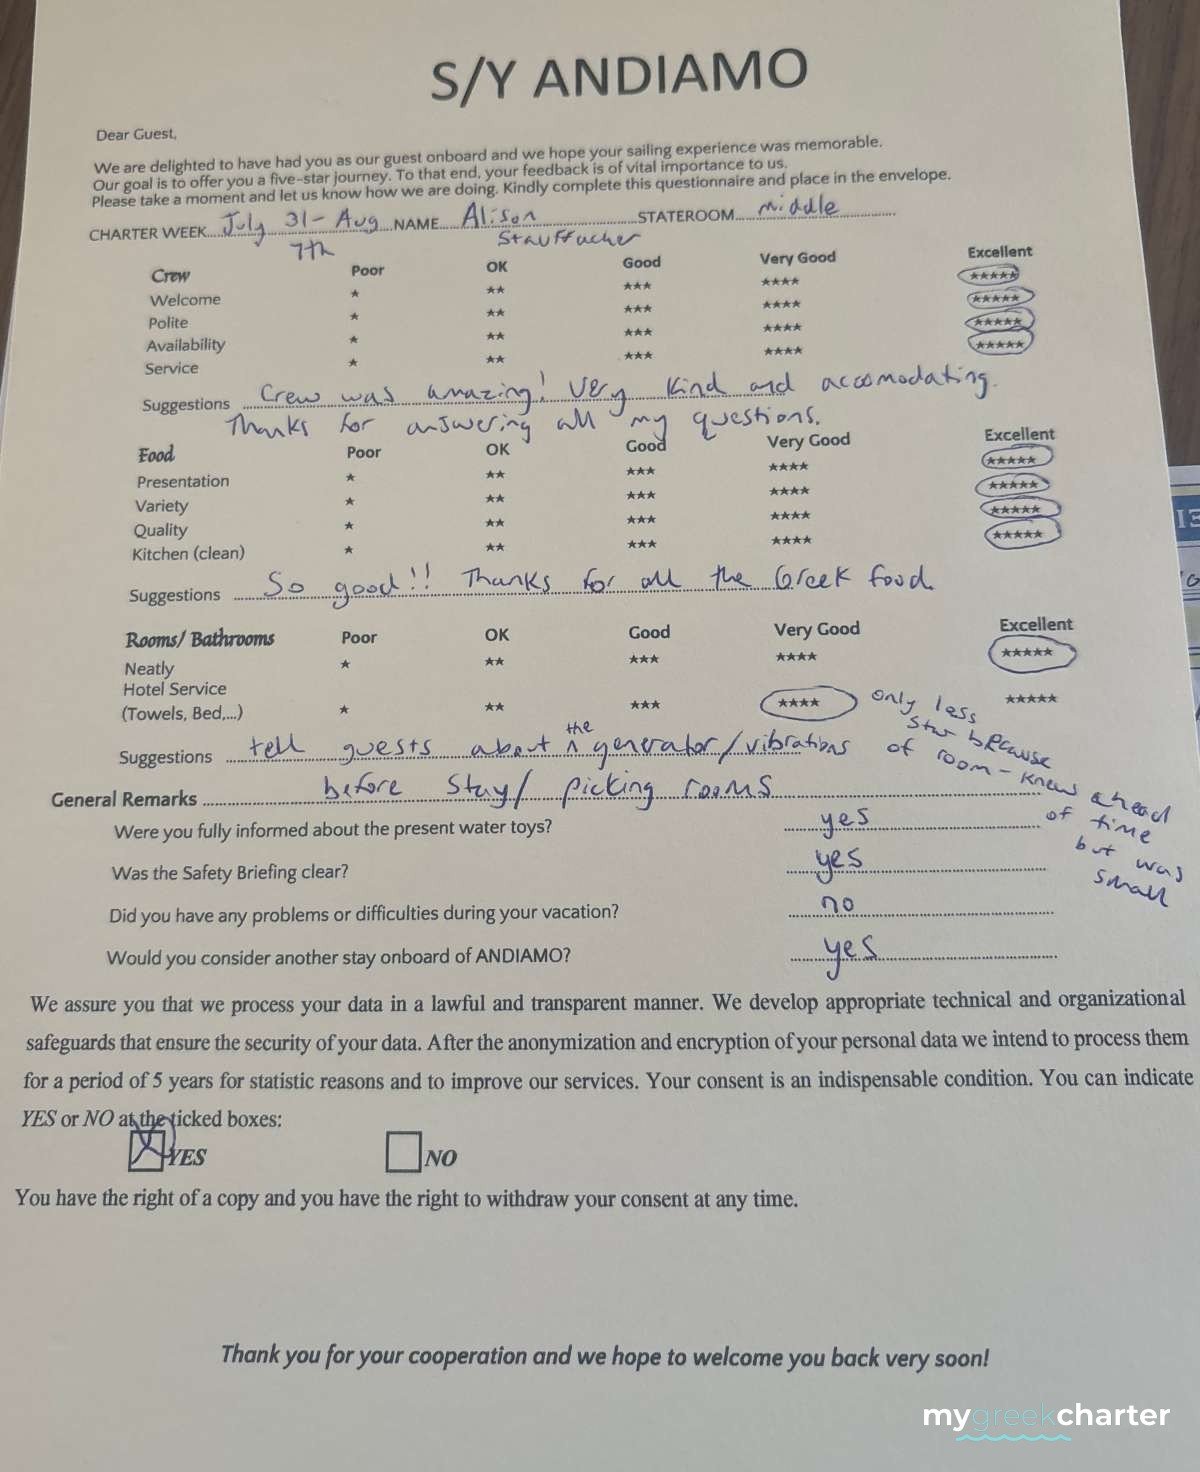 S/Y ANDIAMO
Dear Guest,
We are delighted to have had you as our guest onboard and we hope your sailing experience was memorable.
Our goal is to offer you a five-star journey. To that end, your feedback is of vital importance to us.
Please take a moment and let us know how we are doing. Kindly complete this questionnaire and place in the envelope.
CHARTER WEEK July 31 - Aug 7th NAME Alison Stauffacher STATEROOM middle
Crew Poor OK Good Very Good Excellent
Welcome ★ ★★ ★★★ ★★★★ ★★★★★
Polite ★ ★★ ★★★ ★★★★ ★★★★★
Availability ★ ★★ ★★★ ★★★★ ★★★★★
Service ★ ★★ ★★★ ★★★★ ★★★★★
Suggestions Crew was amazing! Very kind and accomodating.
Thanks for answering all my questions.
Food Poor OK Good Very Good Excellent
Presentation ★ ★★ ★★★ ★★★★ ★★★★★
Variety ★ ★★ ★★★ ★★★★ ★★★★★
Quality ★ ★★ ★★★ ★★★★ ★★★★★
Kitchen (clean) ★ ★★ ★★★ ★★★★ ★★★★★
Suggestions So good!! Thanks for all the Greek food
Rooms/ Bathrooms Poor OK Good Very Good Excellent
Neatly ★ ★★ ★★★ ★★★★ ★★★★★
Hotel Service
(Towels, Bed,...) ★ ★★ ★★★ ★★★★ ★★★★★
only less
star because
of room - knew ahead
of time
but was
small
Suggestions tell guests about the generator/vibrations
General Remarks before stay/ picking rooms
Were you fully informed about the present water toys? yes
Was the Safety Briefing clear? yes
Did you have any problems or difficulties during your vacation? no
Would you consider another stay onboard of ANDIAMO? yes
We assure you that we process your data in a lawful and transparent manner. We develop appropriate technical and organizational
safeguards that ensure the security of your data. After the anonymization and encryption of your personal data we intend to process them
for a period of 5 years for statistic reasons and to improve our services. Your consent is an indispensable condition. You can indicate
YES or NO at the ticked boxes:
YES NO
You have the right of a copy and you have the right to withdraw your consent at any time.
Thank you for your cooperation and we hope to welcome you back very soon!
mygreekcharter